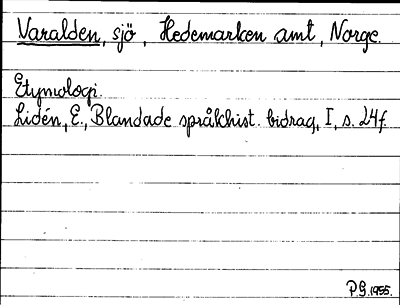 Varalden, sjö, Hedemarken amt, Norge.
Etymologi.
Lidén, E., Blandade språkhist. bidrag, I, s. 24f.
P.G. 1955.